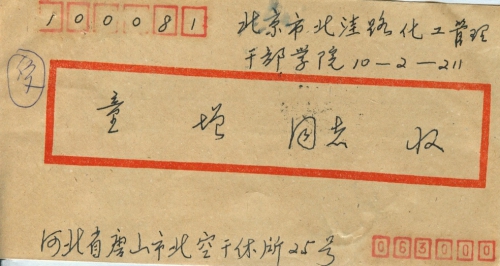 100081
北京市北洼路化工管理
干部学院10-2-211
童增同志收
河北省唐山市北空干休所25号
063000